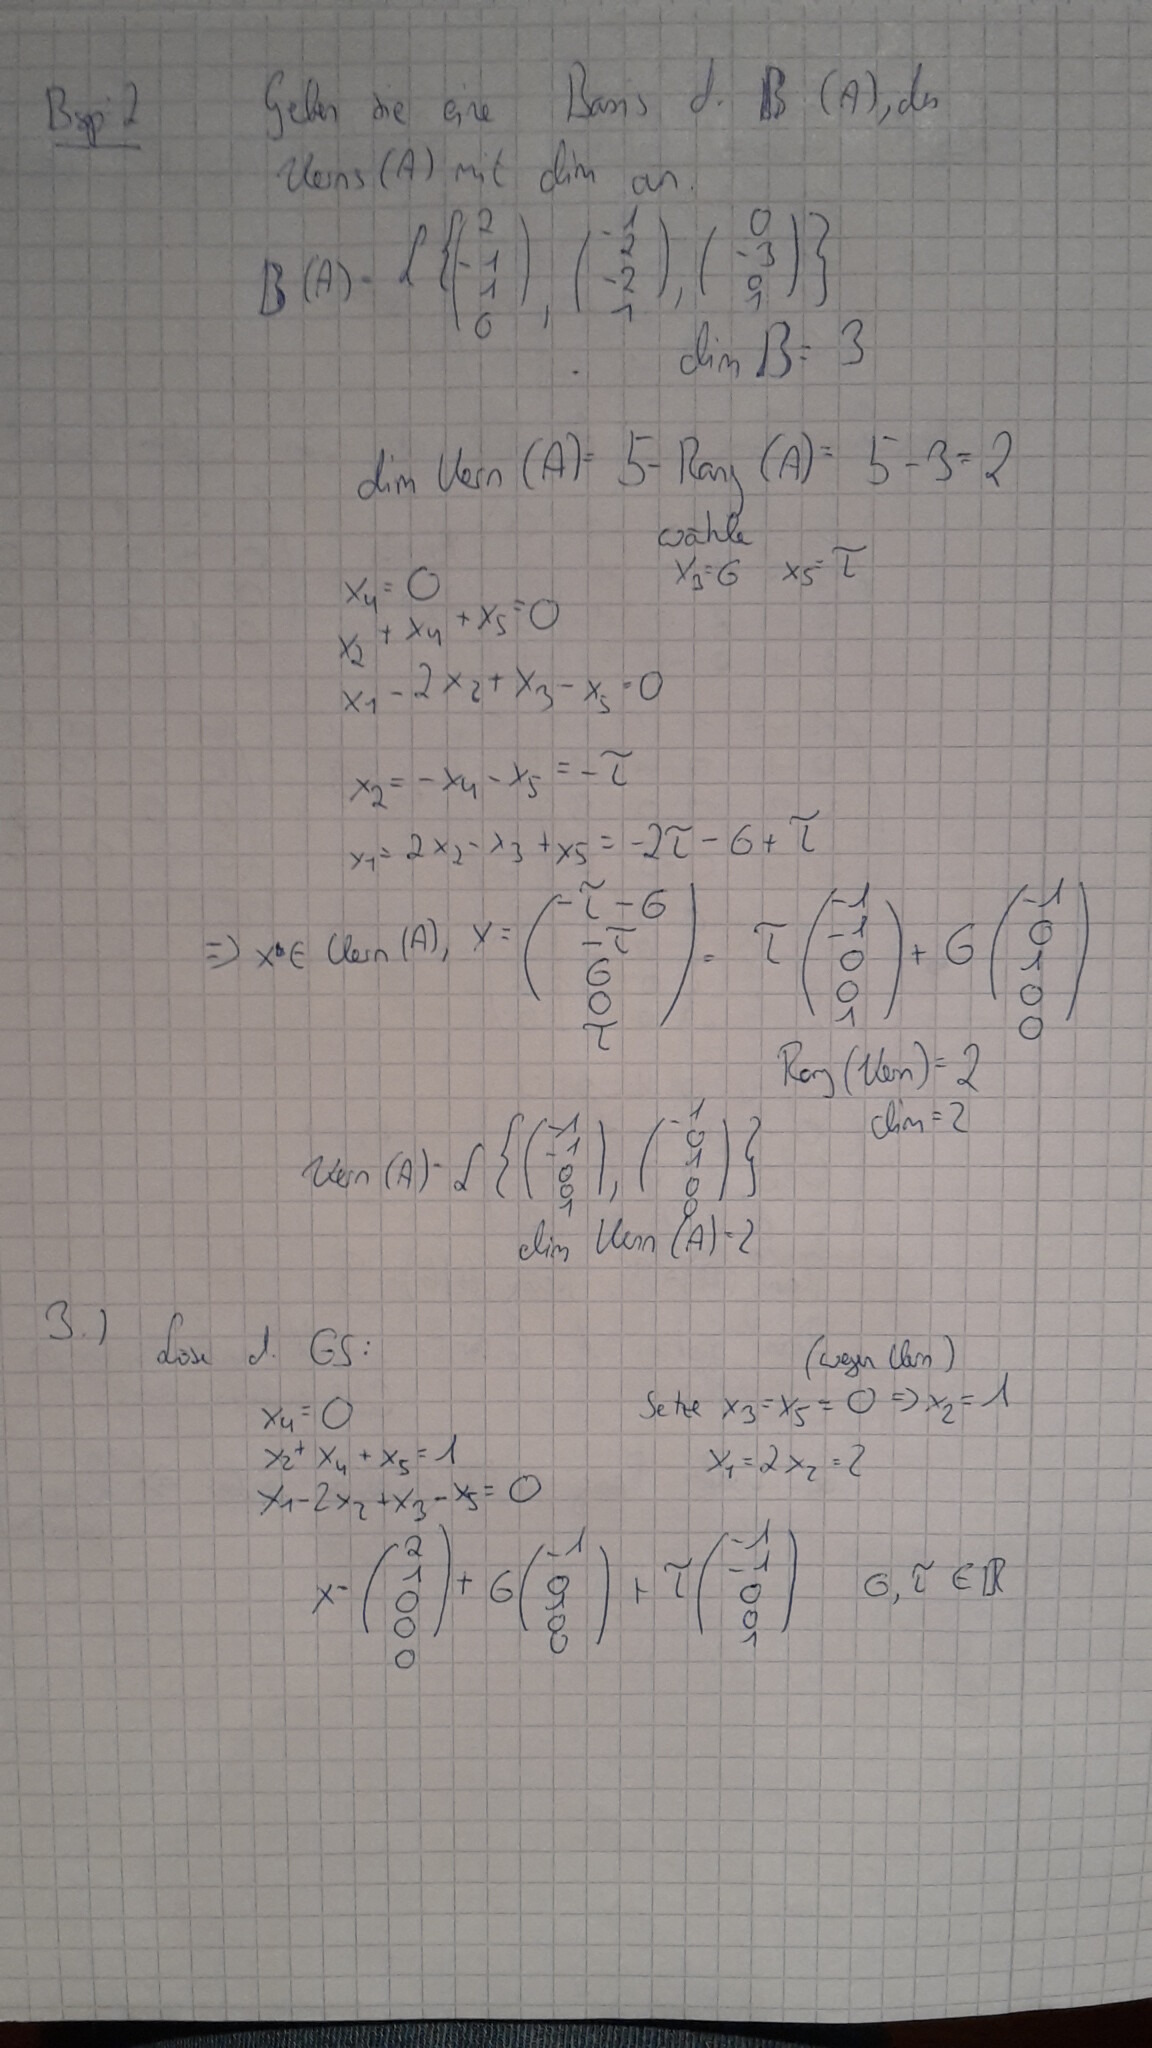 Bsp 2 Geben Sie eine Basis d. B (A), des
Kerns (A) mit dim an.
B (A) = L { ( 2 -1 1 0 ) , ( -1 2 -2 1 ) , ( 0 -3 0 1 ) }
dim B = 3
dim Kern (A) = 5 - Rang (A) = 5 - 3 = 2
wähle
x3 = σ x5 = τ
x4 = 0
x2 + x4 + x5 = 0
x1 - 2x2 + x3 - x5 = 0
x2 = -x4 - x5 = -τ
x1 = 2x2 - x3 + x5 = -2τ - σ + τ
=> x ∈ Kern (A), x = ( -τ - σ -τ σ 0 τ ) = τ ( -1 -1 0 0 1 ) + σ ( -1 0 1 0 0 )
Rang (Kern) = 2
dim = 2
Kern (A) = L { ( -1 -1 0 0 1 ) , ( -1 0 1 0 0 ) }
dim Kern (A) = 2
3.) Löse d. GS:
(wegen Kern)
x4 = 0 Setze x3 = x5 = 0 => x2 = 1
x2 + x4 + x5 = 1 x1 = 2x2 = 2
x1 - 2x2 + x3 - x5 = 0
x = ( 2 1 0 0 0 ) + σ ( -1 0 1 0 0 ) + τ ( -1 -1 0 0 1 ) σ, τ ∈ ℝ